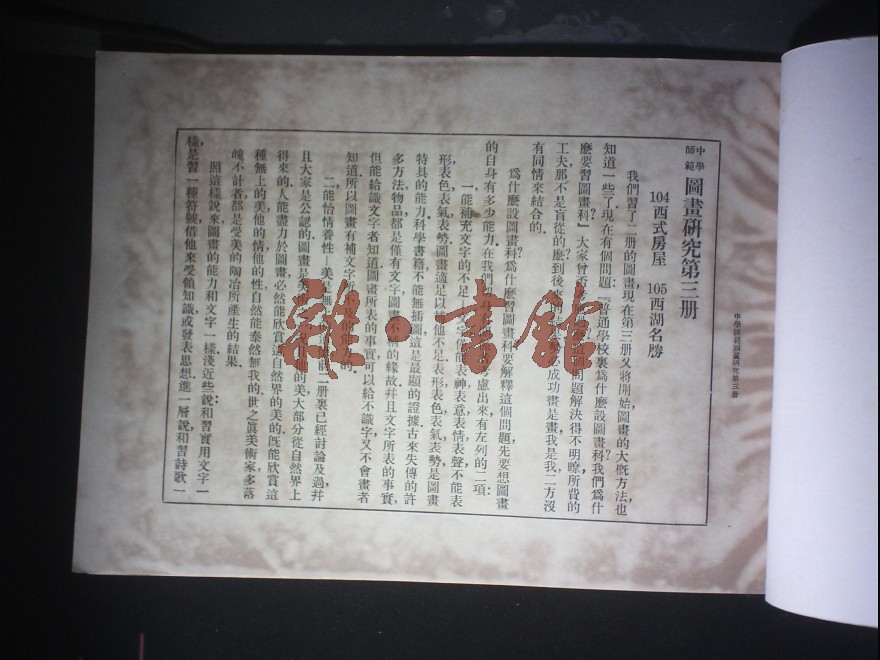 中學師範 圖畫研究第三册
104西式房屋 105西湖名勝
我們習了二册的圖畫,現在第三册又將開始,圖畫的大槪方法,也
知道一些了,現在有個問題:『普通學校裏爲什麽設圖畫科?我們爲什
麽要習圖畫科?』大家曾否 問題解決得不明瞭,所費的
工夫,那不是盲從的麽?到後來 成功,畫是畫,我是我,二方沒
有同情來結合的.
爲什麽設圖畫科?爲什麽習圖畫科?要解釋這個問題,先要想圖畫
的自身有多少能力,在我們 慮出來,有左列的二項:
一能補充文字的不足— 文字僅能表神表意表情表聲,不能表
形表色表氣表勢.圖畫適足以 他不足,表形表色表氣表勢,是圖畫
特具的能力.科學書籍,不能無插圖,這是最顯的證據.古來失傳的許
多方法物品,都是僅有文字,圖畫不 的緣故.幷且文字所表的事實,
但能給識文字者知道,圖畫所表的事實,可以給不識字又不會畫者
知道.所以圖畫有補文字 的.
二能怡情養性—美是無 前二册裏已經討論及過,幷
且大家是公認的.圖畫是美 的美大部分從自然界上
得來的.人能盡力於圖畫,必然能欣賞這自然界的美的.旣能欣賞這
種無上的美,他的情他的性,自然能泰然無我的.世之眞美術家,多落
魄不計者,都是受美的陶冶所產生的結果.
照這樣說來,圖畫的能力和文字一樣.淺近些說,和習實用文字一
樣,是習一種符號,借他來受領知識或發表思想.進一層說,和習詩歌一
中學師範圖畫研究第三册
雜·書館